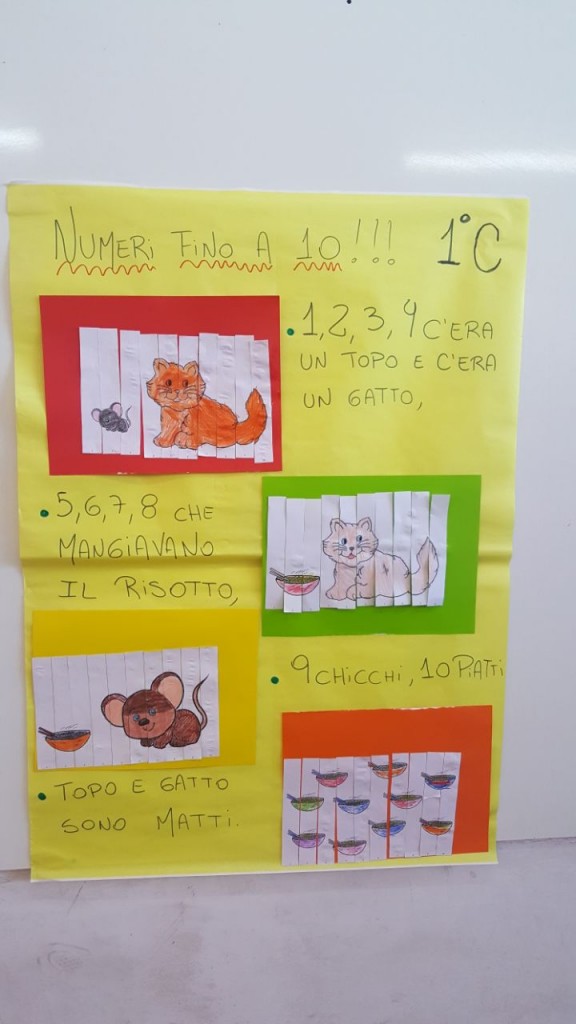 NUMERI FINO A 10!!! 1°C
1,2,3,4 C'ERA
UN TOPO E C'ERA
UN GATTO,
5,6,7,8 CHE
MANGIAVANO
IL RISOTTO,
9 CHICCHI, 10 PIATTI
TOPO E GATTO
SONO MATTI.